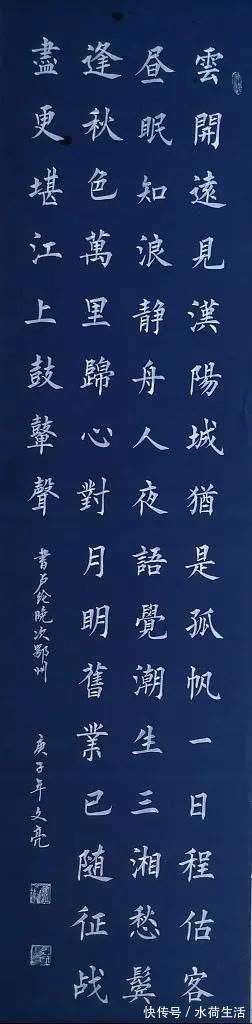 雲開遠見漢陽城猶是孤帆一日程估客
昼眠知浪静舟人夜語覺潮生三湘愁鬓
逢秋色萬里歸心對月明舊業已随征战
盡更堪江上鼓鼙聲
書卢纶晚次鄂州
庚子年文亮
快传号 / 水荷生活